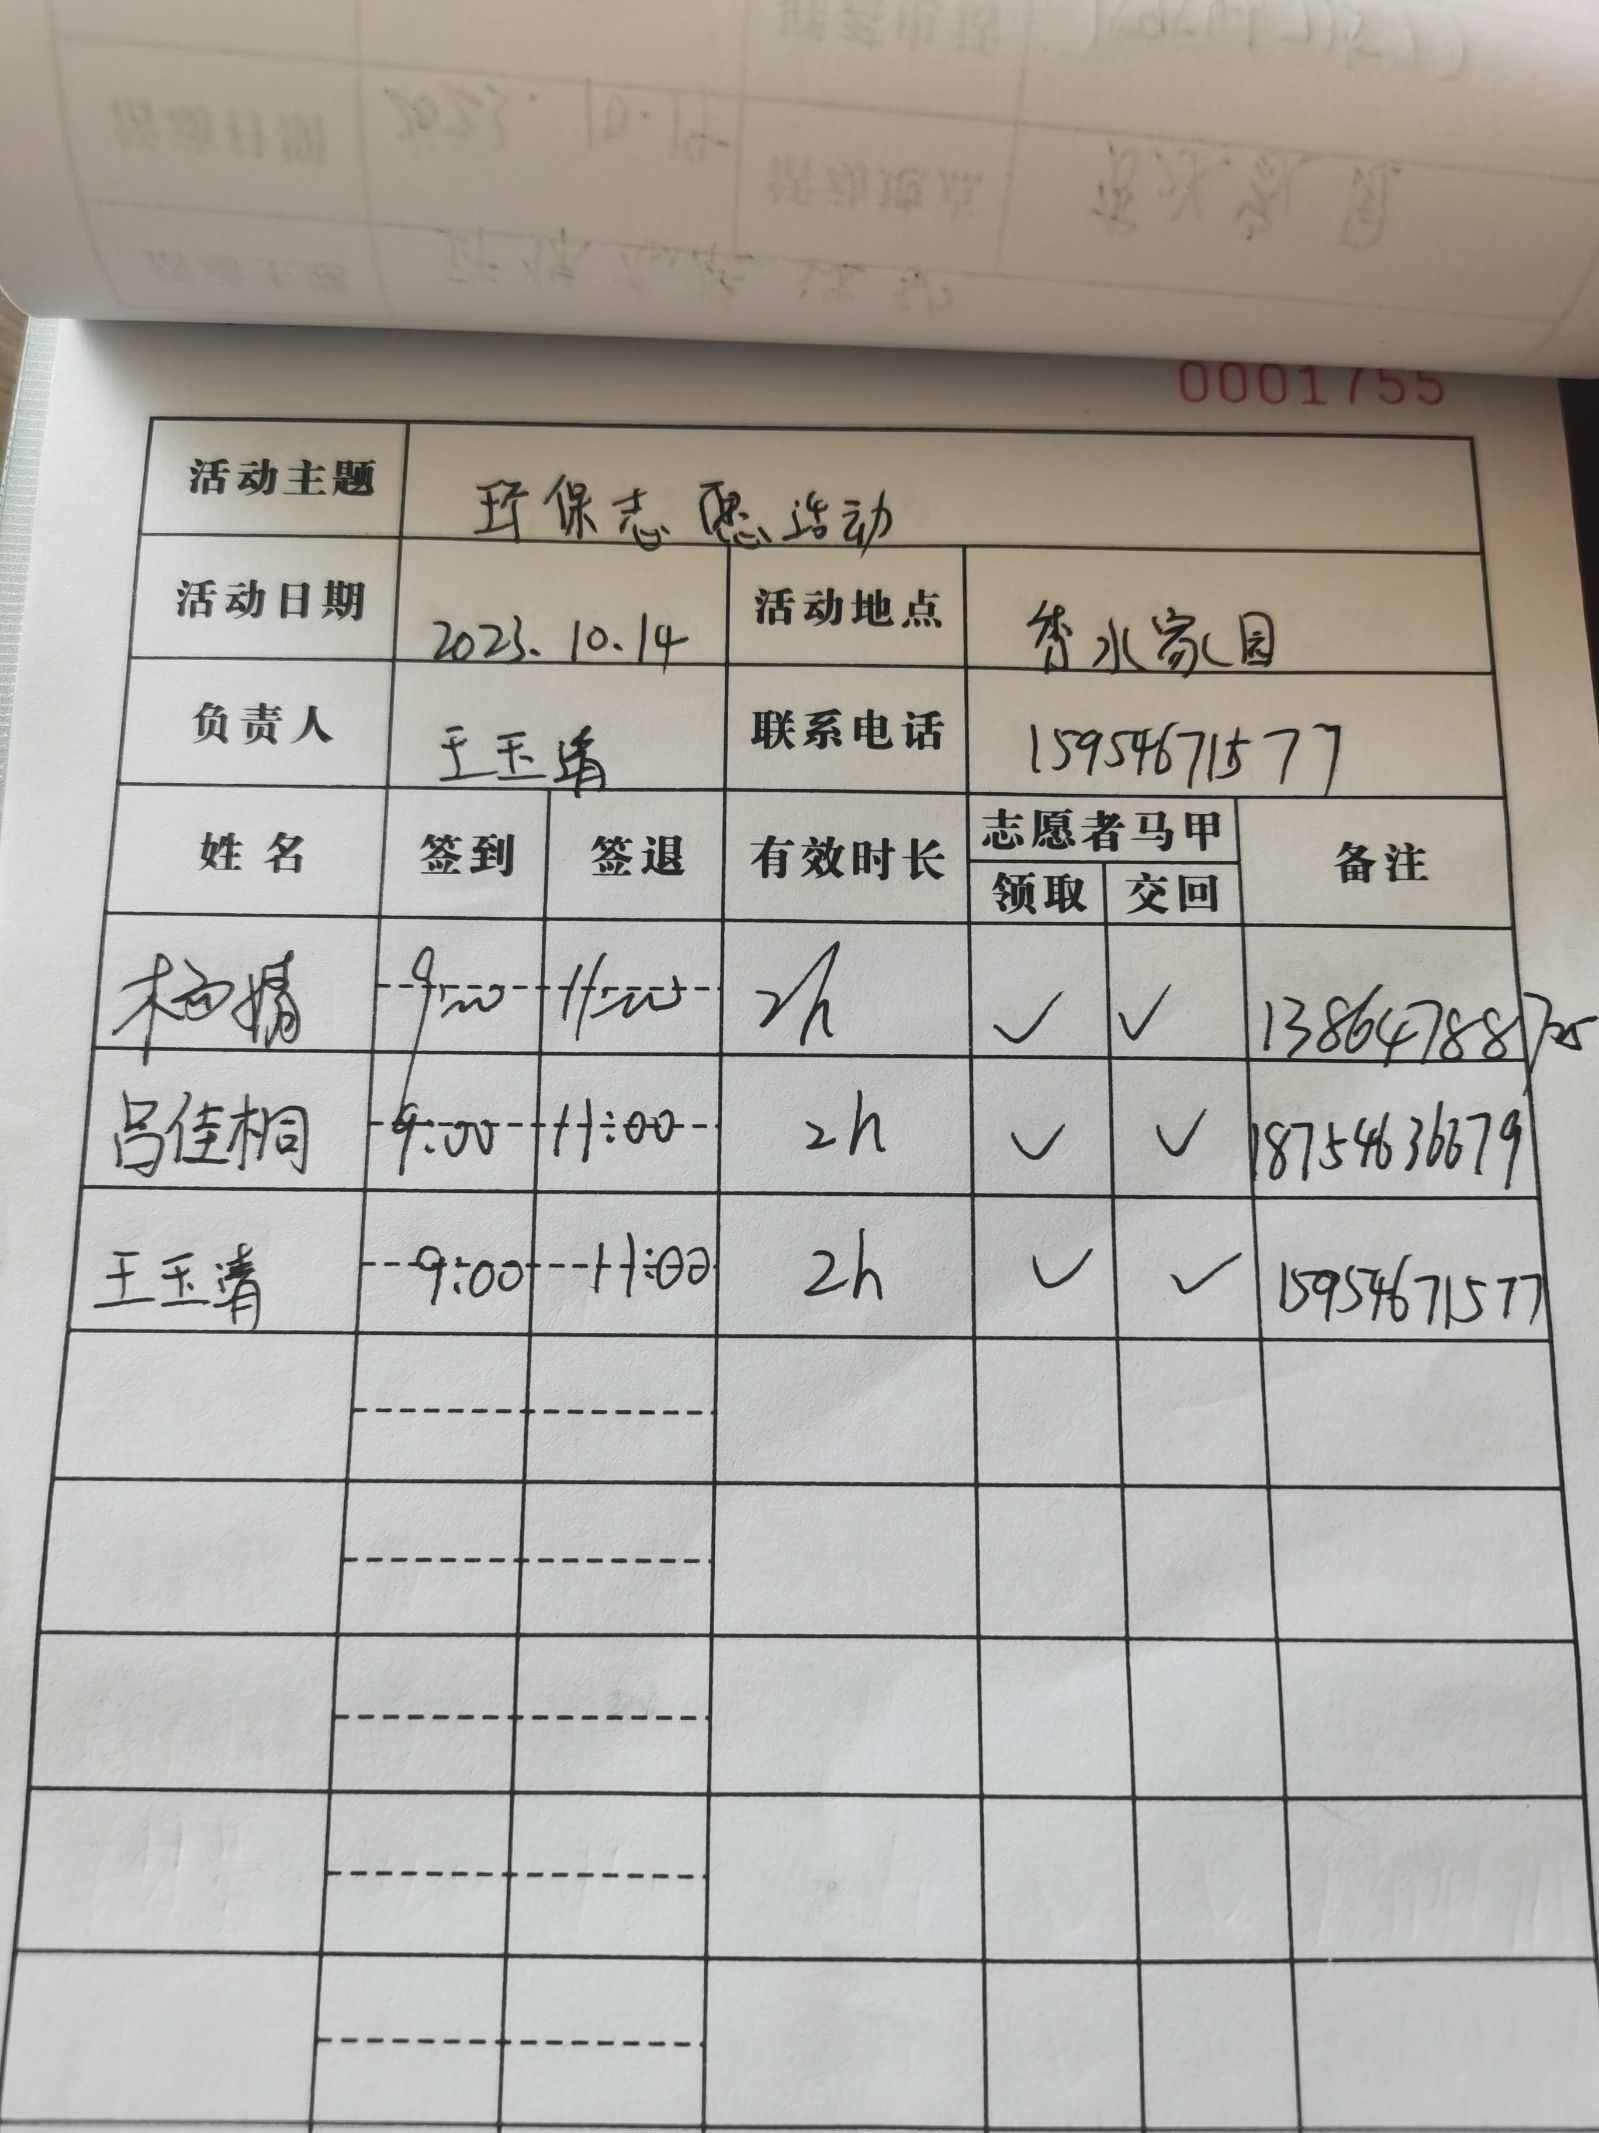 0001755
活动主题 环保志愿活动
活动日期 2023.10.14 活动地点 香水家园
负责人 王玉清 联系电话 15954671577
姓名 签到 签退 有效时长 志愿者马甲 备注
领取 交回
9:00 11:00 2h ✓ ✓
吕佳桐 9:00 11:00 2h ✓ ✓ 18754636679
王玉清 9:00 11:00 2h ✓ ✓ 15954671577